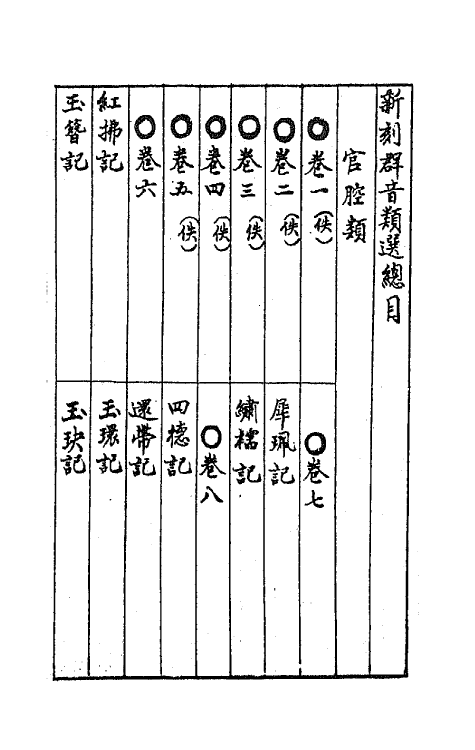 新刻群音類選總目
官腔類
○卷一(佚)
○卷二(佚)
○卷三(佚)
○卷四(佚)
○卷五(佚)
○卷六
紅拂記
玉簪記
○卷七
犀珮記
繡襦記
○卷八
四德記
還帶記
玉環記
玉玦記